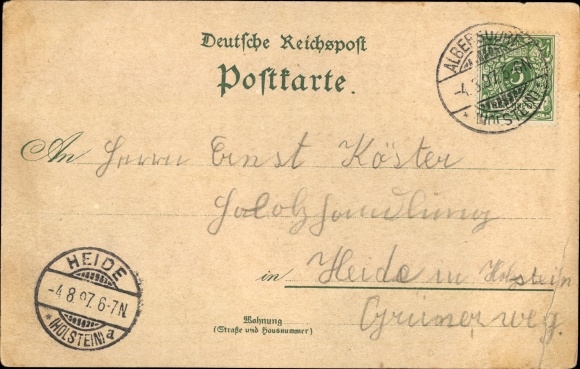 Deutsche Reichspost
Postkarte.
ALBERSDORF
-4.8.97.
* (HOLSTEIN) *
5
An Herrn Ernst Köster
Holzhandlung
in Heide in Holstein
Grünerweg.
Wohnung
(Straße und Hausnummer)
HEIDE
-4.8.97. 6-7N.
*(HOLSTEIN) a